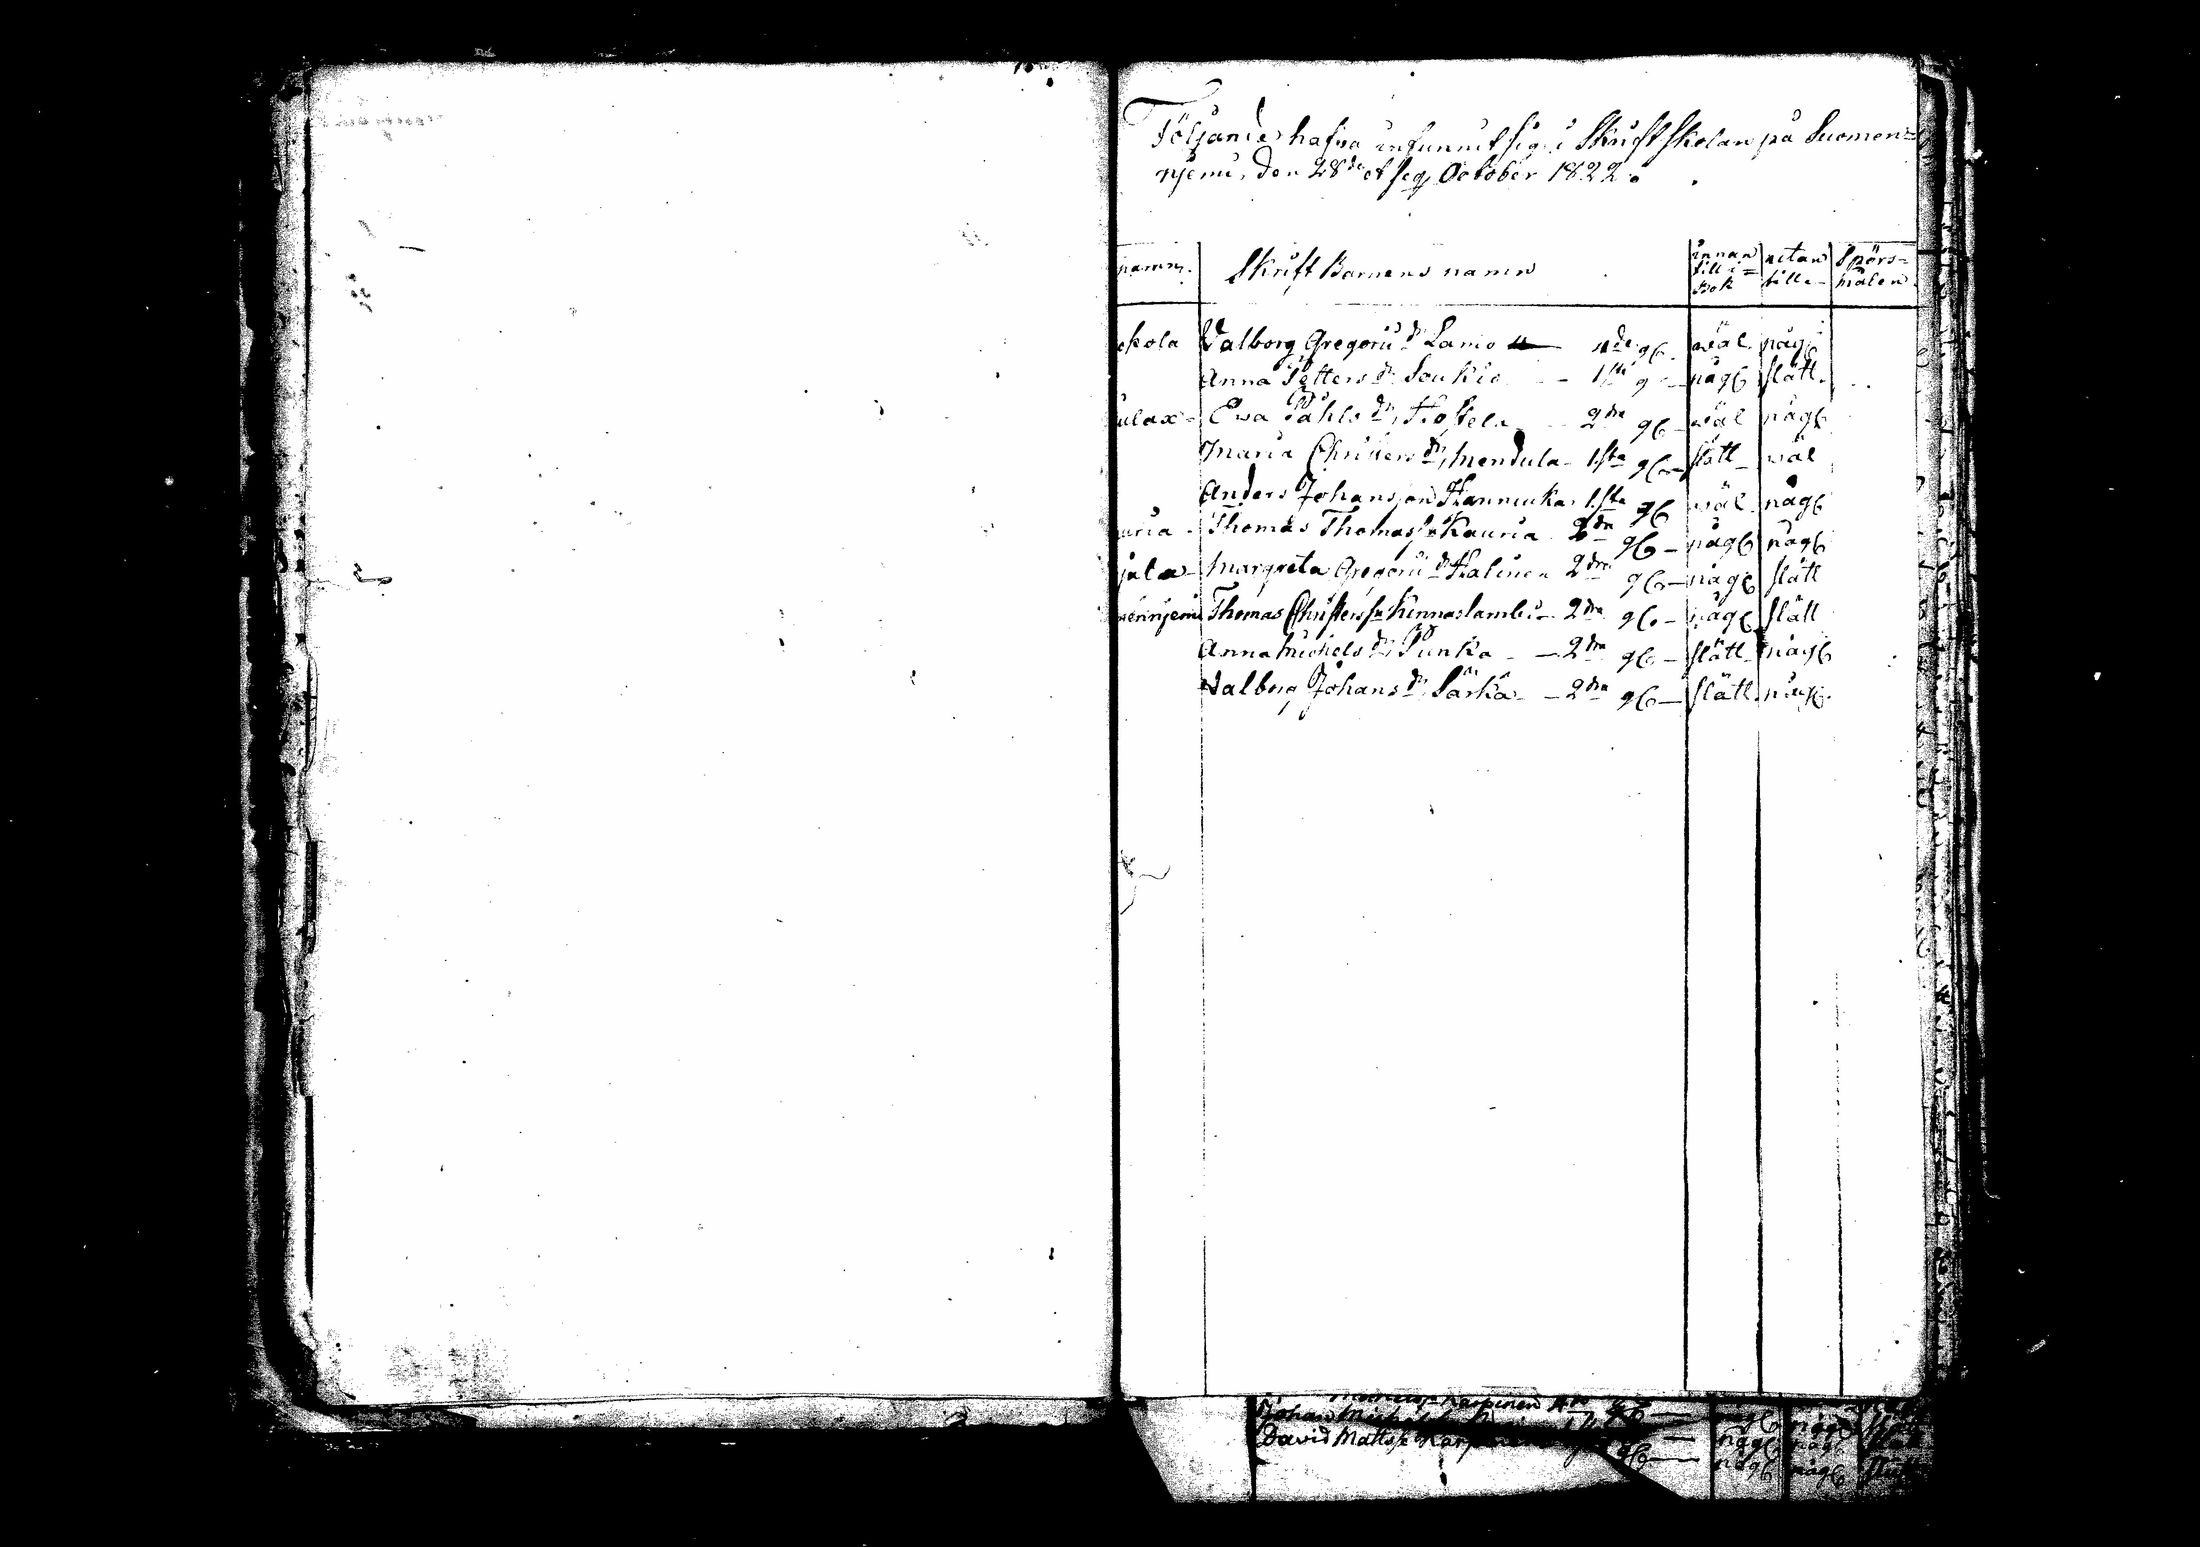 Följande hafva infunnit sig i Skriftskolan på Suomen=
njemi, den 28de et seq. October 1822.
namn. Skrift Barnens namn innan till i Bok utan till Spörs= målen
kola Valborg Gregorii dr Lamo 4de gg. wäl någ
Anna Petters dr Soukio — 1sta g — någ slätt.
ulax - Ewa Påhls dr 2dra gg — wäl någ
Maria Christers dr Mendula - 1sta gg — slätt — wäl
Anders Johansson Hannuka 1sta gg wäl någ
uria - Thomas Thomass Kauria 2dra gg — någ någ
jala - Margreta Gregorii dr Halinen 2dra gg — någ slätt
mennjemi Thomas Christerss Kinnaslambi — 2dra gg — någ slätt
Anna Michels dr Punka — 2dra gg — slätt någ
Valborg Johans dr Särkä — 2dra gg — slätt någ
Karpinen
Johan någ någ
David Matss gg — någ någ